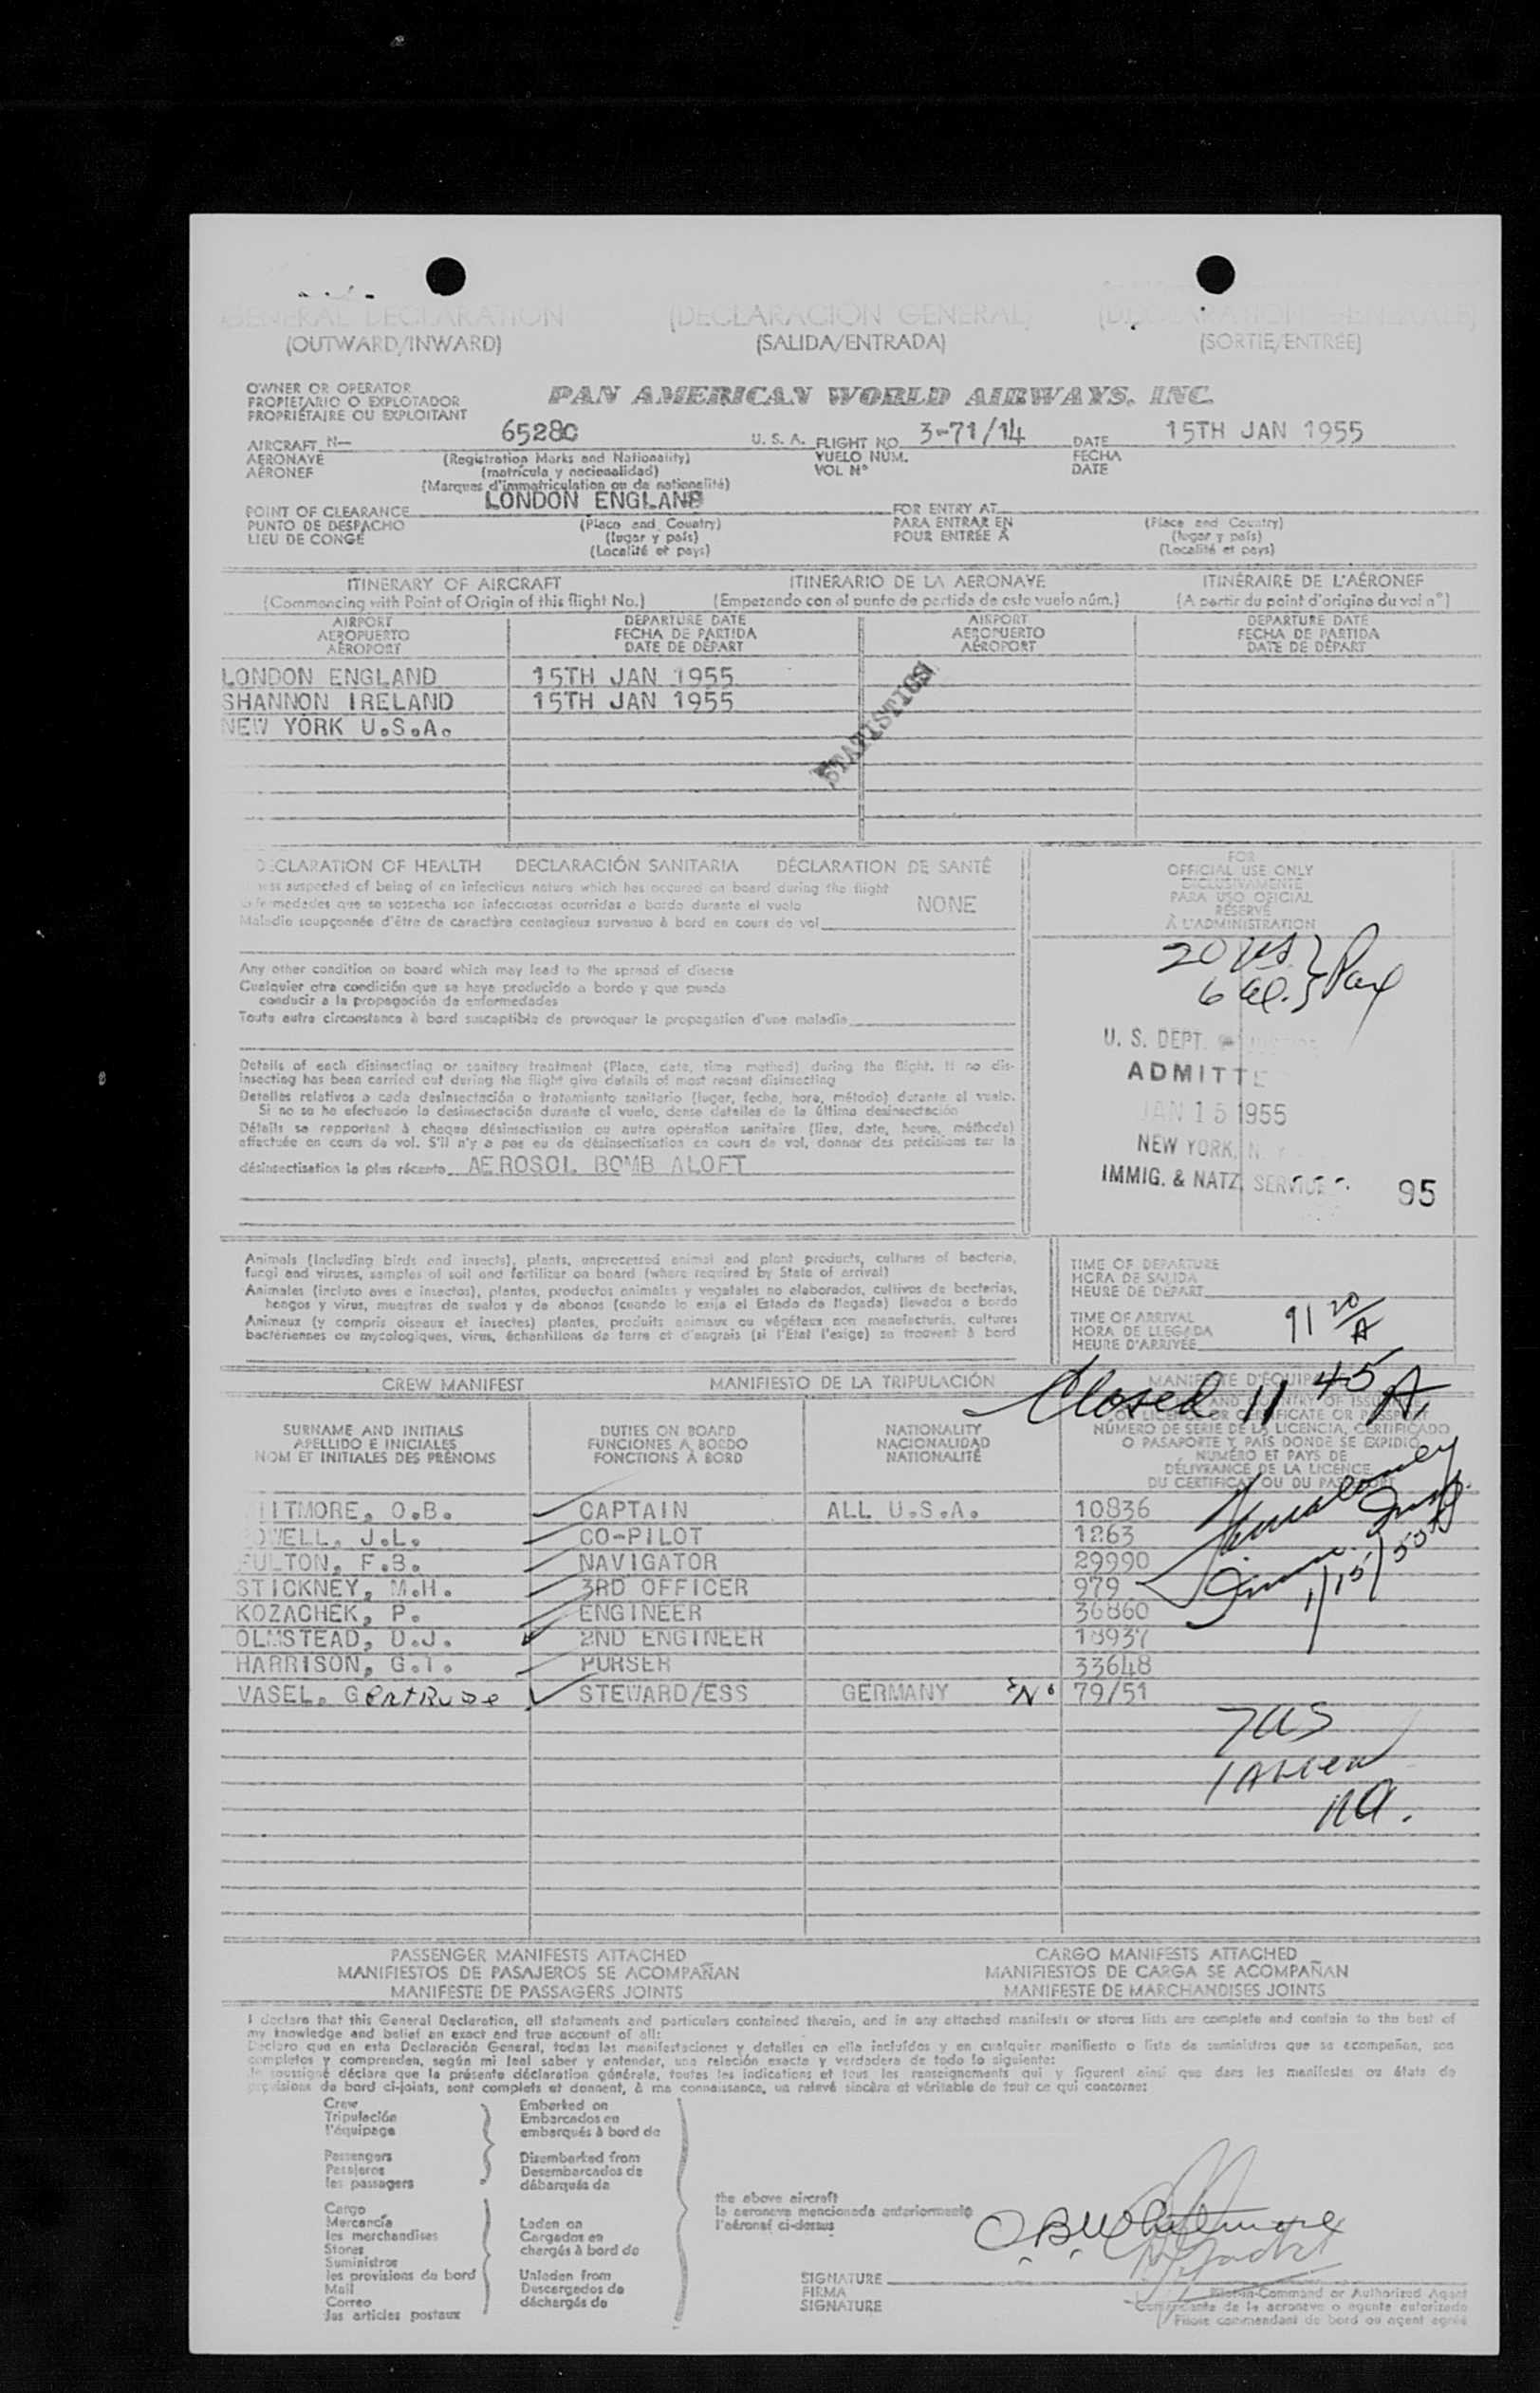 GENERAL DECLARATION (DECLARACIÓN GENERAL)
(OUTWARD/INWARD) (SALIDA/ENTRADA) (SORTIE/ENTRÉE)
OWNER OR OPERATOR
PROPIETARIO O EXPLOTADOR
PROPRIÉTAIRE OU EXPLOITANT
PAN AMERICAN WORLD AIRWAYS, INC.
AIRCRAFT N— 6528C U. S. A. FLIGHT NO. 3-71/14 DATE 15TH JAN 1955
AERONAVE (Registration Marks and Nationality) VUELO NÚM. FECHA
AÉRONEF (matrícula y nacionalidad) VOL Nº DATE
(Marques d'immatriculation ou de nationalité)
POINT OF CLEARANCE LONDON ENGLAND FOR ENTRY AT
PUNTO DE DESPACHO (Place and Country) PARA ENTRAR EN (Place and Country)
LIEU DE CONGÉ (lugar y país) POUR ENTRÉE À (lugar y país)
(Localité et pays) (Localité et pays)
ITINERARY OF AIRCRAFT ITINERARIO DE LA AERONAVE ITINÉRAIRE DE L'AÉRONEF
(Commencing with Point of Origin of this flight No.) (Empezando con el punto de partida de este vuelo núm.) (A partir du point d'origine du vol nº)
AIRPORT DEPARTURE DATE AIRPORT DEPARTURE DATE
AEROPUERTO FECHA DE PARTIDA AEROPUERTO FECHA DE PARTIDA
AÉROPORT DATE DE DÉPART AÉROPORT DATE DE DÉPART
LONDON ENGLAND 15TH JAN 1955
SHANNON IRELAND 15TH JAN 1955
NEW YORK U.S.A.
STATISTICS
DECLARATION OF HEALTH DECLARACIÓN SANITARIA DÉCLARATION DE SANTÉ
was suspected of being of an infectious nature which has occured on board during the flight
Enfermedades que se sospecha son infecciosas ocurridas a bordo durante el vuelo NONE
Maladie soupçonnée d'être de caractère contagieux survenue à bord en cours de vol
Any other condition on board which may lead to the spread of disease
Cualquier otra condición que se haya producido a bordo y que pueda
conducir a la propagación de enfermedades
Toute autre circonstance à bord susceptible de provoquer la propagation d'une maladie
Details of each disinsecting or sanitary treatment (Place, date, time method) during the flight. If no dis-
insecting has been carried out during the flight give details of most recent disinsecting
Detalles relativos a cada desinsectación o tratamiento sanitario (lugar, fecha, hora, método) durante el vuelo.
Si no se ha efectuado la desinsectación durante el vuelo, dense detalles de la última desinsectación
Détails se rapportant à chaque désinsectisation ou autre opération sanitaire (lieu, date, heure, méthode)
effectuée en cours de vol. S'il n'y a pas eu de désinsectisation en cours de vol, donner des précisions sur la
désinsectisation la plus récente AEROSOL BOMB ALOFT
FOR
OFFICIAL USE ONLY
EXCLUSIVAMENTE
PARA USO OFICIAL
RÉSERVÉ
À L'ADMINISTRATION
20 US
6 al. } Pax
U. S. DEPT.
ADMITTE
JAN 15 1955
NEW YORK, N. Y
IMMIG. & NATZ. SERVICE 95
Animals (including birds and insects), plants, unprocessed animal and plant products, cultures of bacteria,
fungi and viruses, samples of soil and fertilizer on board (where required by State of arrival)
Animales (incluso aves e insectos), plantas, productos animales y vegetales no elaborados, cultivos de bacterias,
hongos y virus, muestras de suelos y de abonos (cuando lo exija el Estado de llegada) llevados a bordo
Animaux (y compris oiseaux et insectes) plantes, produits animaux ou végétaux non manufacturés, cultures
bactériennes ou mycologiques, virus, échantillons de terre et d'engrais (si l'État l'exige) se trouvant à bord
TIME OF DEPARTURE
HORA DE SALIDA
HEURE DE DÉPART
TIME OF ARRIVAL
HORA DE LLEGADA
HEURE D'ARRIVÉE
Closed 11 45 A
CREW MANIFEST MANIFIESTO DE LA TRIPULACIÓN
SURNAME AND INITIALS DUTIES ON BOARD NATIONALITY
APELLIDO E INICIALES FUNCIONES A BORDO NACIONALIDAD
NOM ET INITIALES DES PRÉNOMS FONCTIONS À BORD NATIONALITÉ
NÚMERO DE SERIE DE LA LICENCIA, CERTIFICADO
O PASAPORTE Y PAÍS DONDE SE EXPIDIÓ
NUMÉRO ET PAYS DE
DÉLIVRANCE DE LA LICENCE
DU CERTIFICAT OU DU
ITMORE, O.B. CAPTAIN ALL U.S.A. 10836
OWELL, J.L. CO-PILOT 1263
FULTON, F.B. NAVIGATOR 29990
STICKNEY, M.H. 3RD OFFICER 979
KOZACHEK, P. ENGINEER 36860
OLMSTEAD, D.J. 2ND ENGINEER 18937
HARRISON, G.T. PURSER 33648
VASEL. Gertrude STEWARD/ESS GERMANY Nº 79/51
7 US
1 Alien
PASSENGER MANIFESTS ATTACHED CARGO MANIFESTS ATTACHED
MANIFIESTOS DE PASAJEROS SE ACOMPAÑAN MANIFIESTOS DE CARGA SE ACOMPAÑAN
MANIFESTE DE PASSAGERS JOINTS MANIFESTE DE MARCHANDISES JOINTS
I declare that this General Declaration, all statements and particulars contained therein, and in any attached manifests or stores lists are complete and contain to the best of
my knowledge and belief an exact and true account of all:
Declaro que en esta Declaración General, todas las manifestaciones y detalles en ella incluídos y en cualquier manifiesto o lista de suministros que se acompañan, son
completos y comprenden, según mi leal saber y entender, una relación exacta y verdadera de todo lo siguiente:
Je soussigné déclare que la présente déclaration générale, toutes les indications et tous les renseignements qui y figurent ainsi que dans les manifestes ou états de
provisions de bord ci-joints, sont complets et donnent, à ma connaissance, un relevé sincère et véritable de tout ce qui concerne:
Crew Embarked on
Tripulación Embarcados en
l'équipage embarqués à bord de
Passengers Disembarked from
Pasajeros Desembarcados de
les passagers débarqués de
the above aircraft
la aeronave mencionada anteriormente
l'aéronef ci-dessus
Cargo
Mercancía Laden on
les merchandises Cargados en
Stores chargés à bord de
Suministros
les provisions de bord Unladen from
Mail Descargados de
Correo déchargés de
les articles postaux
O.B. Whitmore
SIGNATURE
FIRMA
SIGNATURE
Pilot-in-Command or Authorized Agent
Comandante de la aeronave o agente autorizado
Pilote commandant de bord ou agent agréé